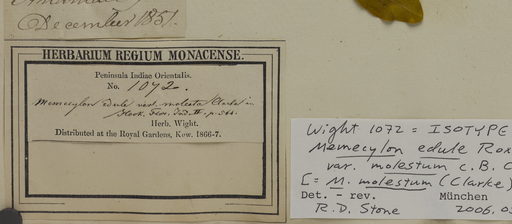 December 1851.
HERBARIUM REGIUM MONACENSE.
Peninsula Indiae Orientalis.
No. 1072.
Memecylon edule var. molesta Clarke in
Hook. Flor. Ind. II. p. 564.
Herb. Wight.
Distributed at the Royal Gardens, Kew. 1866-7.
Wight 1072 = ISOTYPE
Memecylon edule Rox
var. molestum C.B. C
[= M. molestum (Clarke)
Det. – rev. München
R.D. Stone 2006, 0